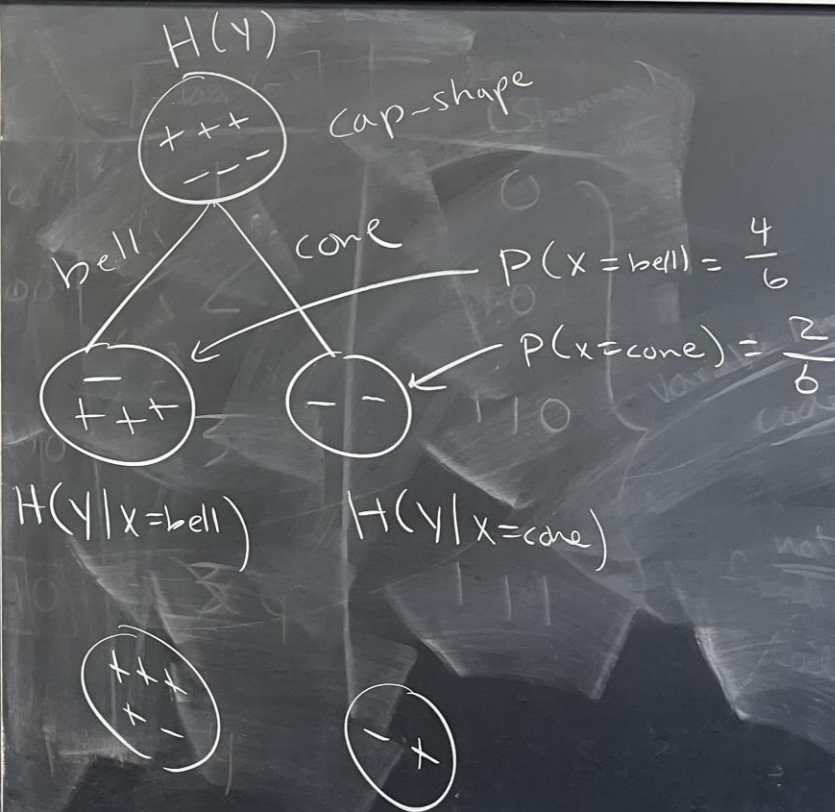 H(Y)
+ + +
- - -
cap-shape
bell
cone
P(x=bell) = 4/6
P(x=cone) = 2/6
-
+ + +
- -
H(Y|X=bell)
H(Y|X=cone)
+ + +
+ -
- +